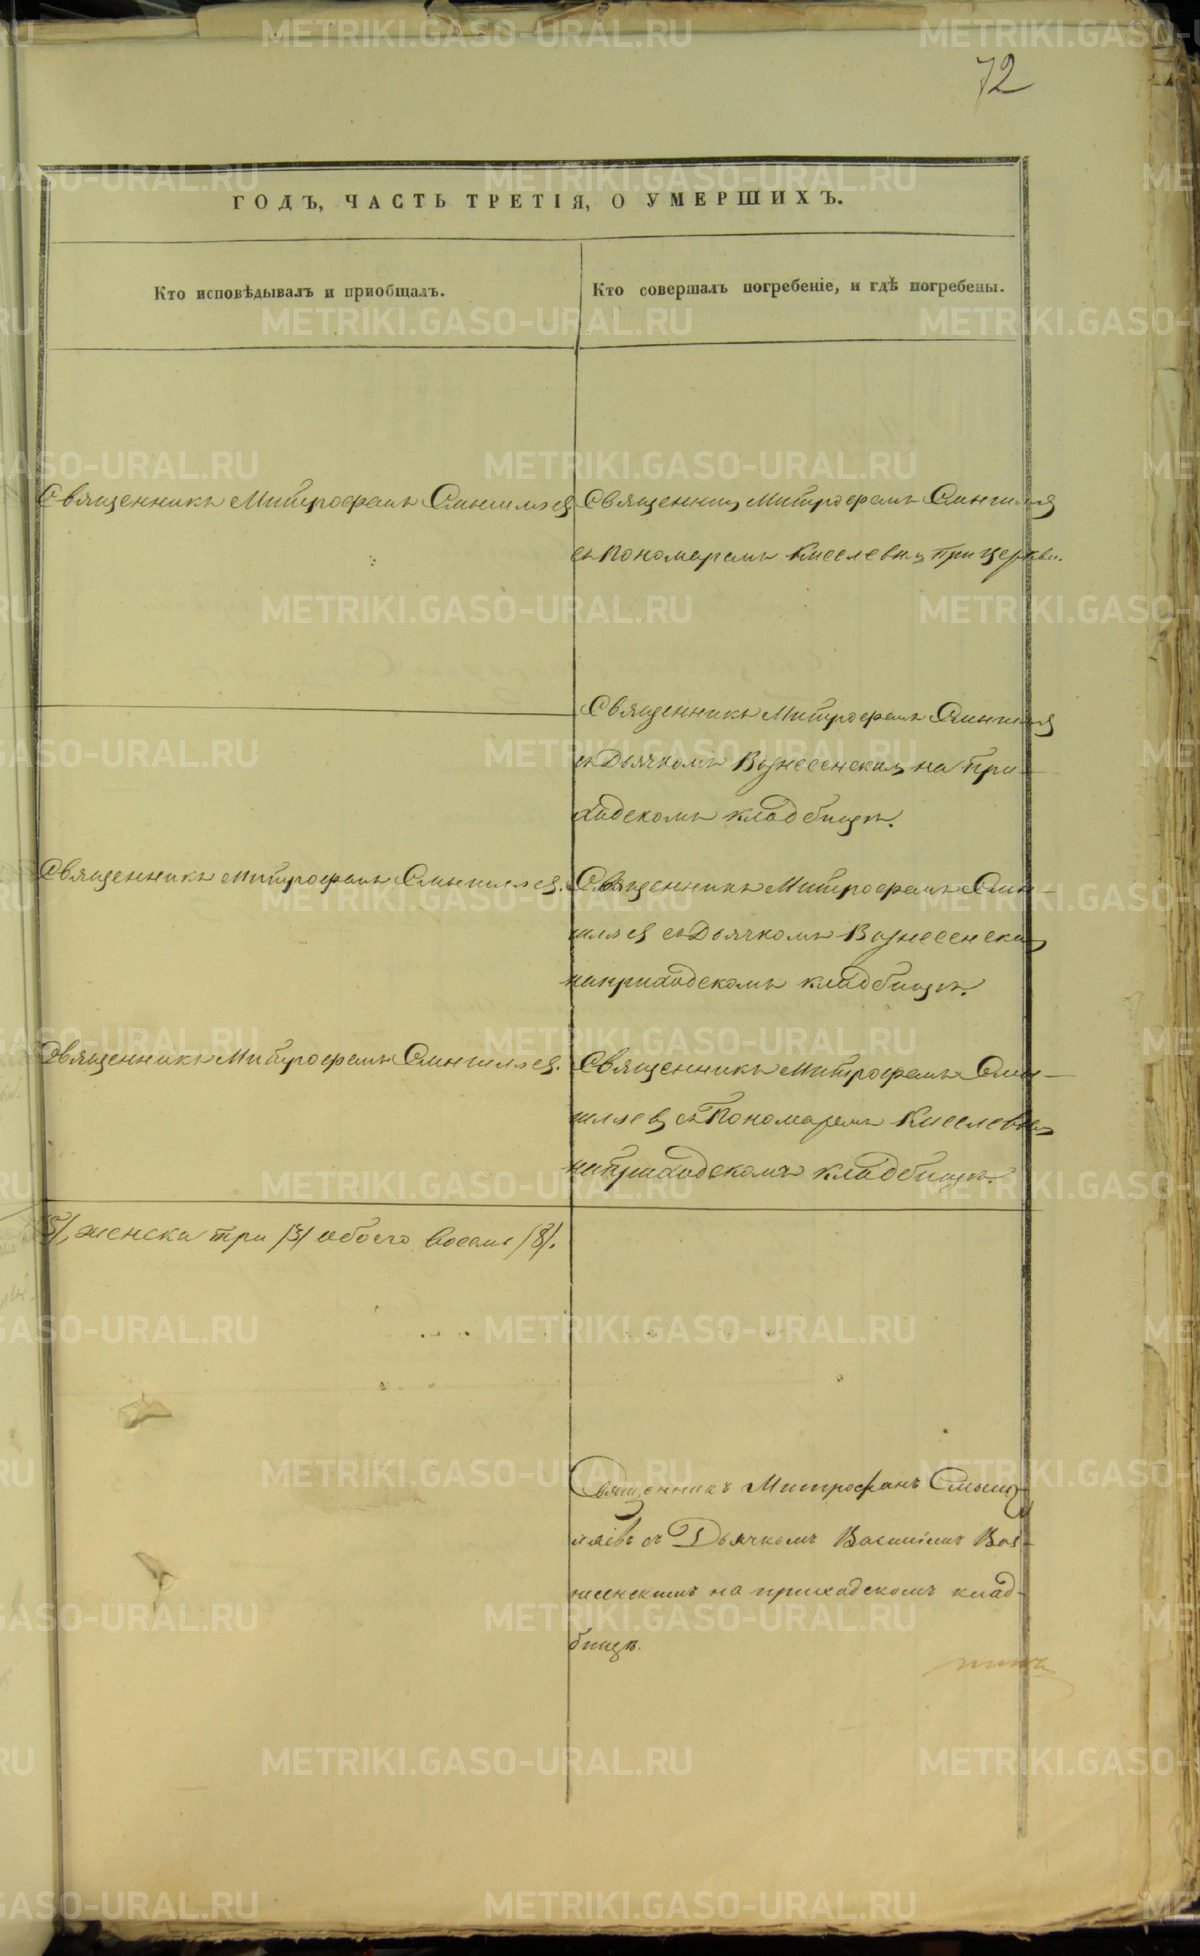 72
ГОДЪ, ЧАСТЬ ТРЕТІЯ, О УМЕРШИХЪ.
Кто исповѣдывалъ и пріобщалъ.
Кто совершалъ погребеніе, и гдѣ погребены.
Священникъ Митрофанъ
Священникъ Митрофанъ
съ Пономаремъ Киселевымъ при церкви.
Священникъ Митрофанъ
съ Дьячкомъ Вознесенскимъ на при-
ходскомъ кладбищѣ.
Священникъ Митрофанъ
Священникъ Митрофанъ
съ Дьячкомъ Вознесенскимъ
на приходскомъ кладбищѣ.
Священникъ Митрофанъ
Священникъ Митрофанъ
съ Пономаремъ Киселевымъ
на приходскомъ кладбищѣ.
/5/, женска три /3/ обоего восемь /8/.
Священникъ Митрофанъ Смыш-
ляевъ съ Дьячкомъ Василіемъ Воз-
несенскимъ на приходскомъ клад-
бищѣ.
METRIKI.GASO-URAL.RU